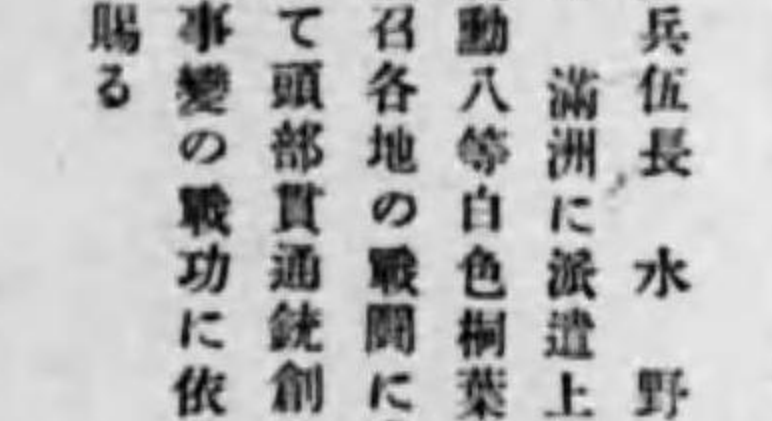 兵伍長 水野
滿洲に派遣上
勳八等白色桐葉
召各地の戰鬪に
て頭部貫通銃創
事變の戰功に依
賜る